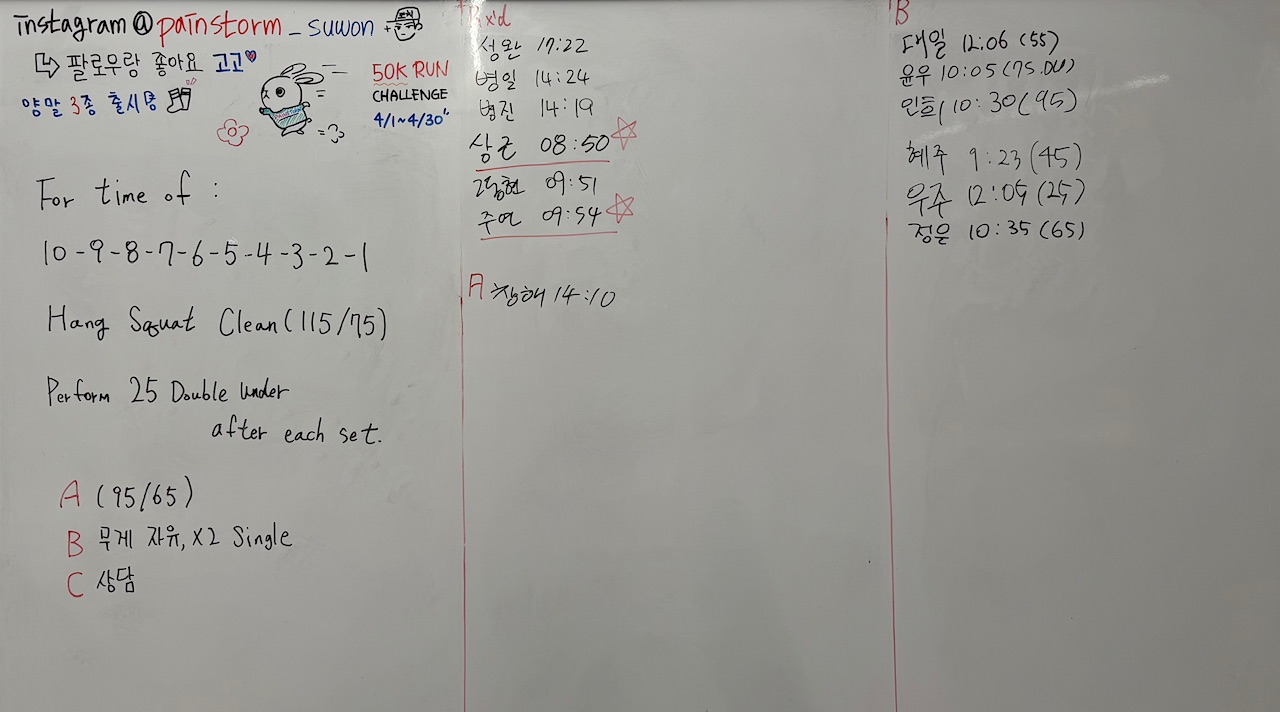 instagram@painstorm_suwon
팔로우랑 좋아요 고고
양말 3종 출시
50K RUN
CHALLENGE
4/1~4/30
For time of :
10-9-8-7-6-5-4-3-2-1
Hang Squat Clean(115/75)
Perform 25 Double Under
after each set.
A (95/65)
B 무게 자유, x2 Single
C 상담
Rx'd
성완 17:22
병일 14:24
병진 14:19
상근 08:50
09:51
주연 09:54
A 창해 14:10
B
대일 12:06 (55)
윤우 10:05 (75.DU)
민희 10:30 (95)
혜주 9:23 (45)
우주 12:05 (25)
정은 10:35 (65)